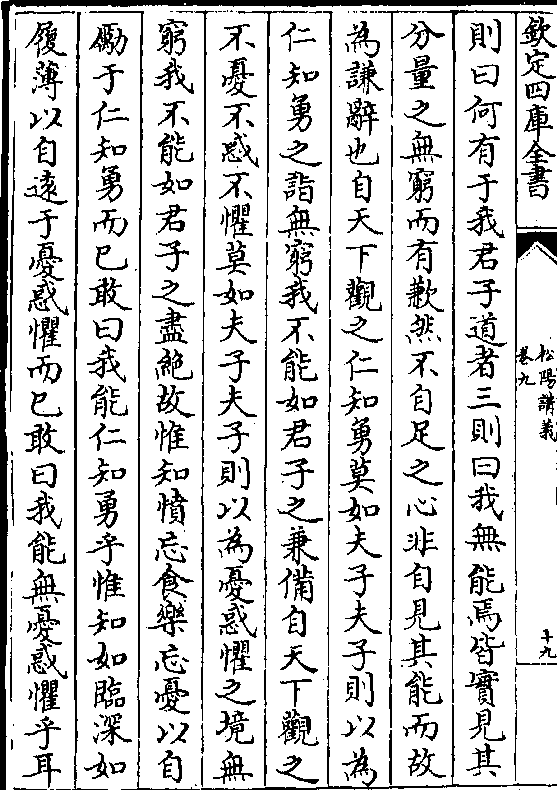 欽定四庫全書
松陽講義
卷九
十九
則曰何有于我君子道者三則曰我無能焉皆實見其
分量之無窮而有歉然不自足之心非自見其能而故
為謙辭也自天下觀之仁知勇莫如夫子夫子則以為
仁知勇之詣無窮我不能如君子之兼備自天下觀之
不憂不惑不懼莫如夫子夫子則以為憂惑懼之境無
窮我不能如君子之盡絶故惟知憤忘食樂忘憂以自
勵于仁知勇而已敢曰我能仁知勇乎惟知如臨深如
履薄以自遠于憂惑懼而已敢曰我能無憂惑懼乎耳